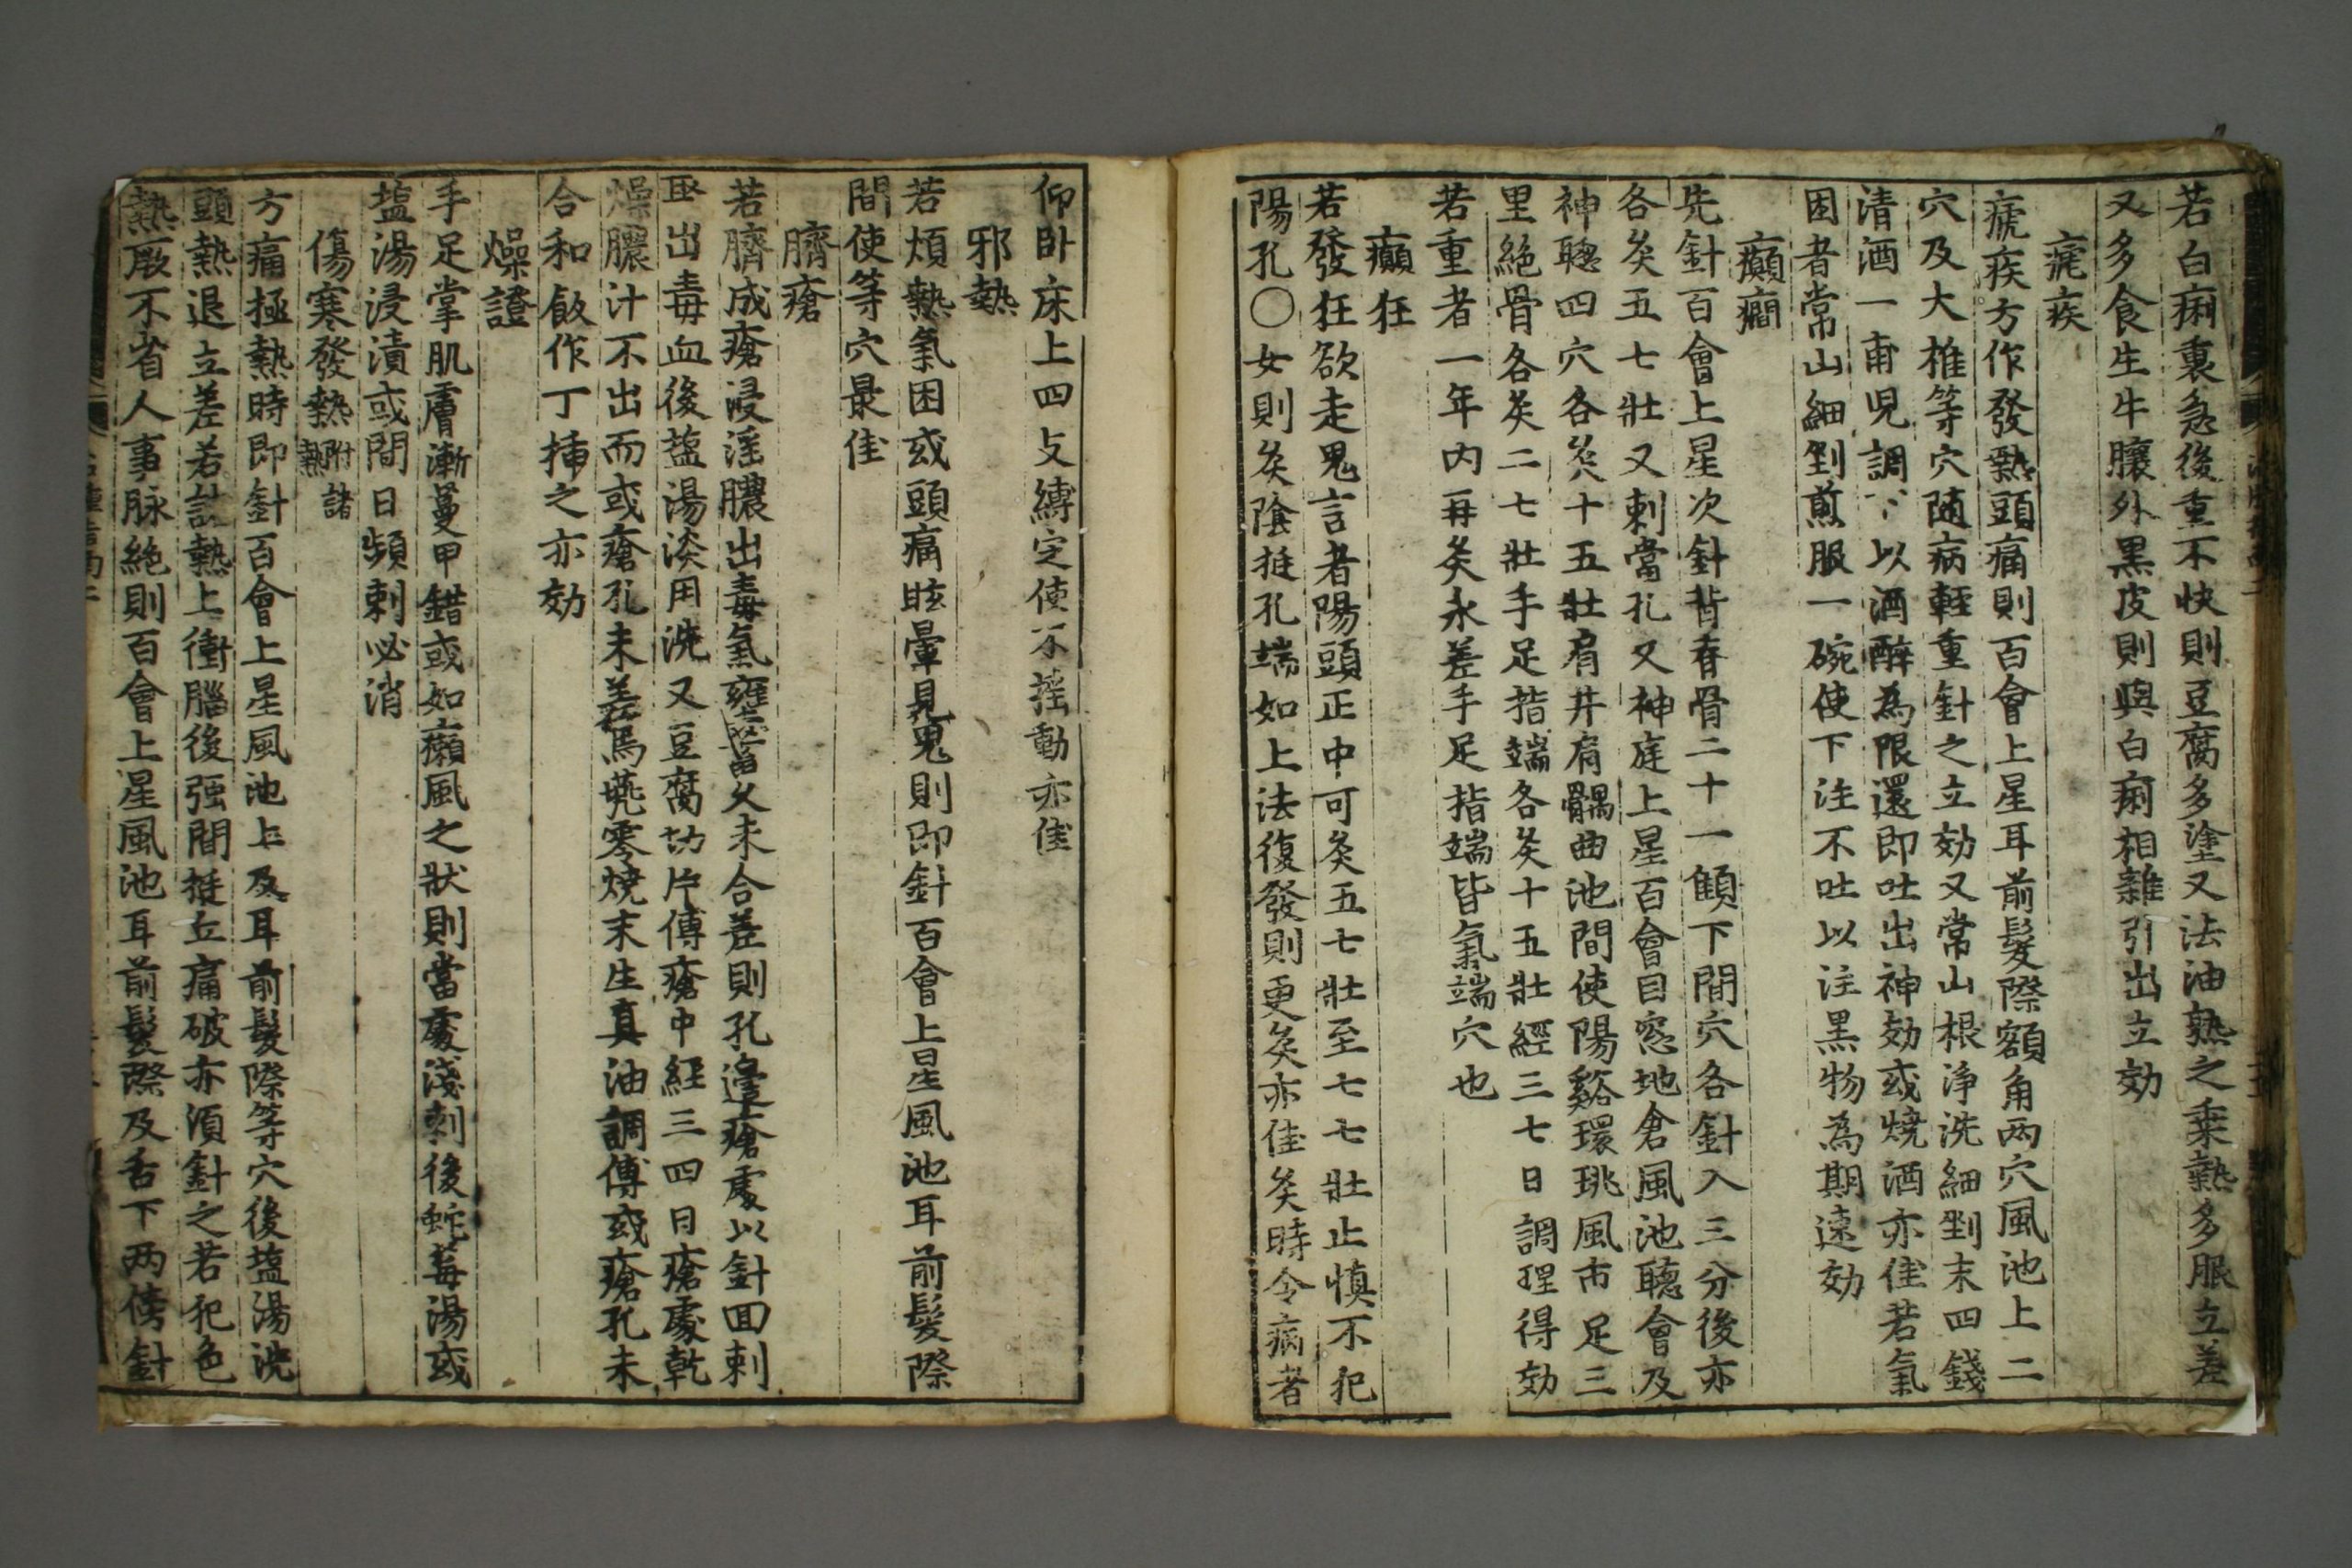 若白痢裏急後重不快則豆腐多塗又法油熟之乘熱多服立差
又多食生牛䑋外黑皮則與白痢相雜引出立効
瘧疾
瘧疾方作發熱頭痛則百會上星耳前髮際額角兩穴風池上二
穴及大椎等穴随病輕重針之立効又常山根浄洗細剉末四錢
清酒一甫児調下以酒醉為限還即吐出神効或燒酒亦佳若氣
困者常山細剉煎服一碗使下注不吐以注黑物為期遠効
癲癎
先針百會上星次針背脊骨二十一顀下間穴各針入三分後亦
各灸五七壯又刺當孔又神庭上星百會目窓地倉風池聽會及
神聰四穴各灸十五壯肩井肩髃曲池間使陽谿環跳風市足三
里絶骨各灸二七壯手足指端各灸十五壯經三七日調理得効
若重者一年内再灸永差手足指端皆氣端穴也
癲狂
若發狂欲走鬼言者陽頭正中可灸五七壯至七七壯止慎不犯
陽孔〇女則灸陰挺孔端如上法復發則更灸亦佳灸時令病者
仰卧床上四支縛定使不揺動亦佳
邪熱
若煩熱氣困或頭痛眩暈見鬼則即針百會上星風池耳前髮際
間使等穴最佳
臍瘡
若臍成瘡浸滛膿出毒氣壅蓄久未合差則孔邊瘡處以針回刺
取出毒血後塩湯淡用洗又豆腐切片傅瘡中經三四日瘡處乾
燥膿汁不出而或瘡孔未差焉蕘零燒末生真油調傅或瘡孔未
合和飯作丁揷之亦効
燥證
手足掌肌膚漸蔓甲錯或如癩風之狀則當處淺刺後蛇莓湯或
塩湯浸漬或間日頻刺必消
傷寒發熱附諸熱
方痛極熱時即針百會上星風池上及耳前髮際等穴後塩湯洗
頭熱退立差若註熱上衝腦後强間挺立痛破亦須針之若犯色
熱厥不省人事脉絶則百會上星風池耳前髮際及舌下兩傍針